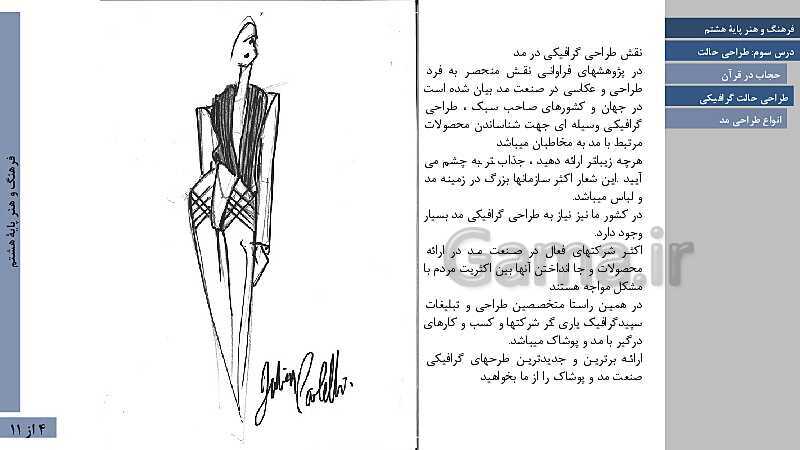 فرهنگ و هنر پایهٔ هشتم
درس سوم: طراحی حالت
حجاب در قرآن
طراحی حالت گرافیکی
انواع طراحی مد
نقش طراحی گرافیکی در مد
در پژوهشهای فراوانی نقش منحصر به فرد
طراحی و عکاسی در صنعت مد بیان شده است
در جهان و کشورهای صاحب سبک ، طراحی
گرافیکی وسیله ای جهت شناساندن محصولات
مرتبط با مد به مخاطبان میباشد
هرچه زیباتر ارائه دهید ، جذاب تر به چشم می
آیید .این شعار اکثر سازمانها بزرگ در زمینه مد
و لباس میباشد.
در کشور ما نیز نیاز به طراحی گرافیکی مد بسیار
وجود دارد.
اکثر شرکتهای فعال در صنعت مد در ارائه
محصولات و جا انداختن آنها بین اکثریت مردم با
مشکل مواجه هستند
در همین راستا متخصصین طراحی و تبلیغات
سپیدگرافیک یاری گر شرکتها و کسب و کارهای
درگیر با مد و پوشاک میباشد.
ارائه برترین و جدیدترین طرحهای گرافیکی
صنعت مد و پوشاک را از ما بخواهید
Gama.ir
فرهنگ و هنر پایهٔ هشتم
۴ از ۱۱